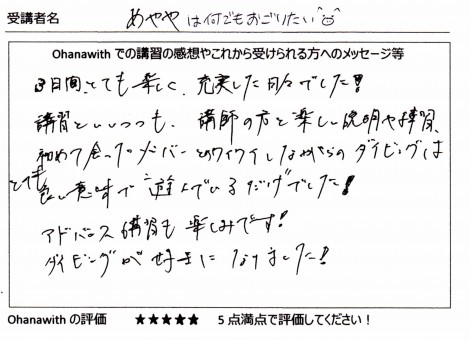 受講者名 あややは何でもおごりたい
Ohanawith での講習の感想やこれから受けられる方へのメッセージ等
3日間、とても楽しく、充実した日々でした!
講習といいつつも、講師の方と楽しい説明や練習、
初めて会ったメンバーとのワイワイしながらのダイビングは
とても良い意味で"遊んでいるだけ"でした!
アドバンス講習も楽しみです!
ダイビングが好きになりました!
Ohanawith の評価 ★★★★★ 5 点満点で評価してください!